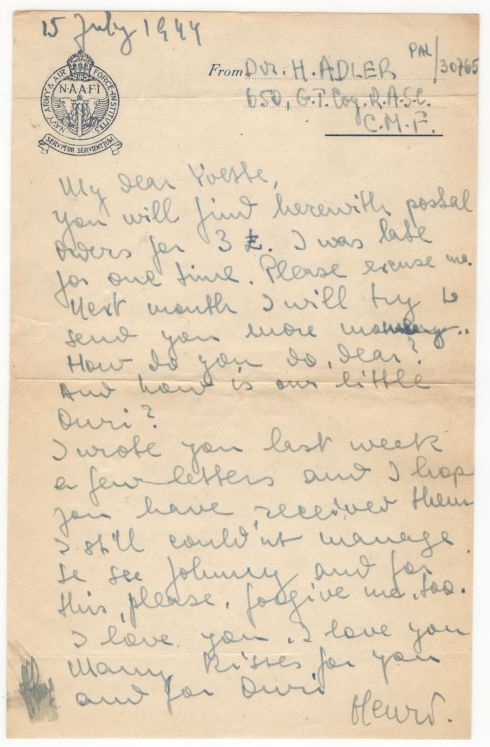 15 July 1944
NAVY, ARMY & AIR FORCE INSTITUTES
N·A·A·F·I
SERVITOR SERVIENTIUM
From Dvr. H. ADLER PAL/30765
650, G.T. Coy. R.A.S.C.
C.M.F.
My dear Yvette,
you will find herewith postal
orders for 3 £. I was late
for one time. Please excuse me.
Next month I will try to
send you more money..
How do you do, dear?
And how is our little
Ouri?
I wrote you last week
a few letters and I hop
you have received them
I still could'nt manage
to see Johnny and for
this, please, forgive me, too.
I love you, I love you
Many kisses for you
and for Ouri
Henri.